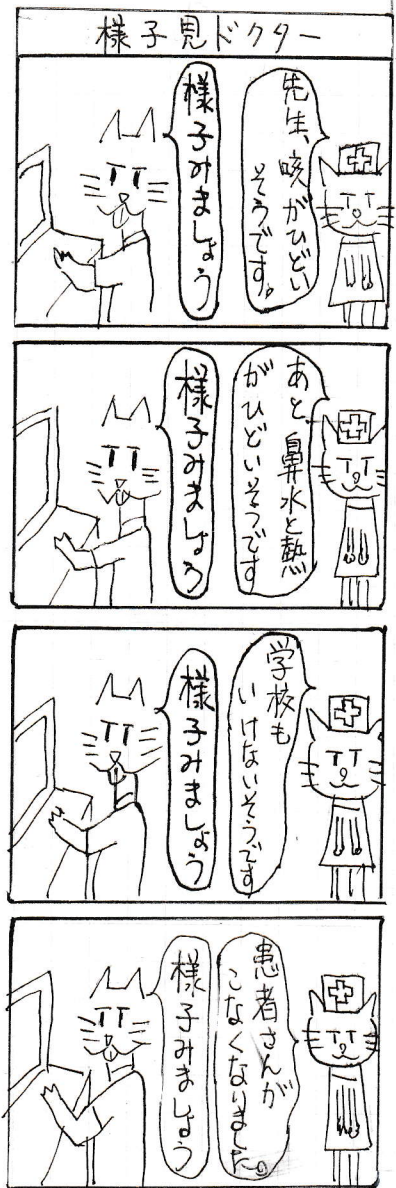 様子見ドクター
先生、咳がひどい
そうです。
様子みましょう
あと、鼻水と熱
がひどいそうです
様子みましょう
学校も
いけないそうです
様子みましょう
患者さんが
こなくなりました。
様子みましょう